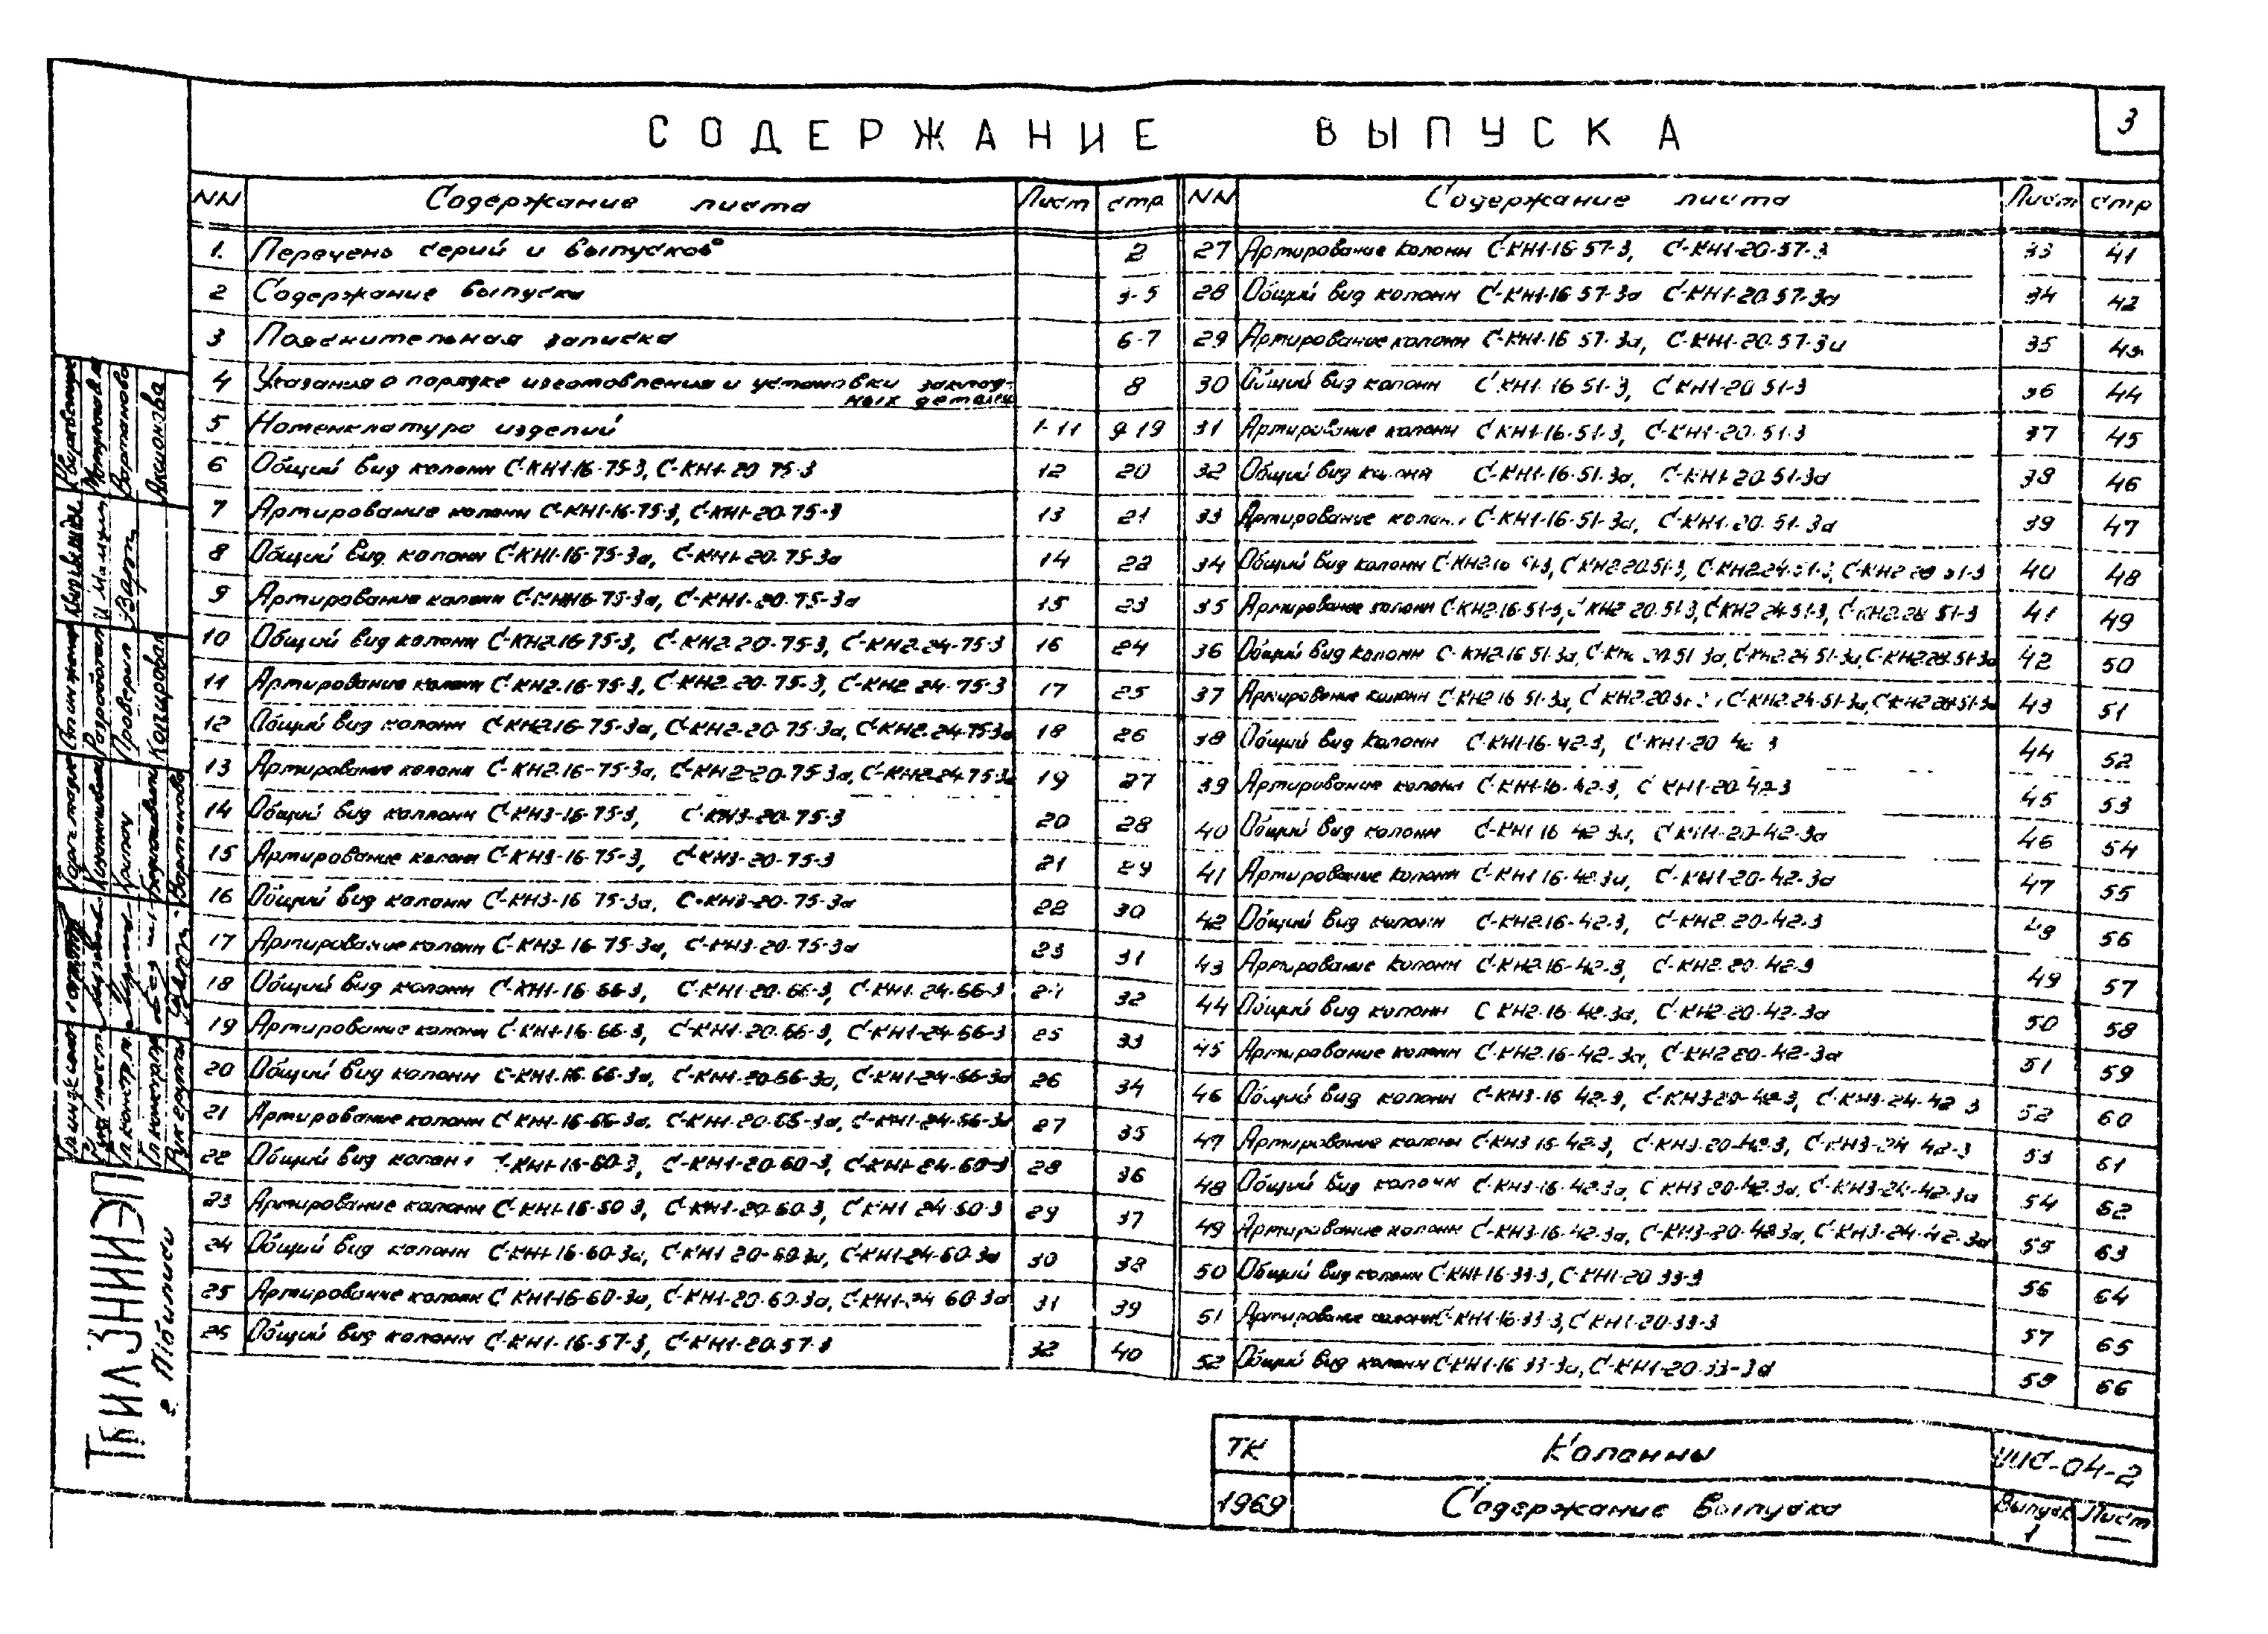 СОДЕРЖАНИЕ ВЫПУСКА
3
NN Содержание листа Лист стр.
1. Перечень серий и выпусков 2
2 Содержание выпуска 3-5
3 Пояснительная записка 6-7
4 Указания о порядке изготовления и установки заклад-
ных деталей 8
5 Номенклатура изделий 1-11 9-19
6 Общий вид колонн С-КН1-16-75-3, С-КН1-20-75-3 12 20
7 Армирование колонн С-КН1-16-75-3, С-КН1-20-75-3 13 21
8 Общий вид колонн С-КН1-16-75-3а, С-КН1-20-75-3а 14 22
9 Армирование колонн С-КН1-16-75-3а, С-КН1-20-75-3а 15 23
10 Общий вид колонн С-КН2-16-75-3, С-КН2-20-75-3, С-КН2-24-75-3 16 24
11 Армирование колонн С-КН2-16-75-3, С-КН2-20-75-3, С-КН2-24-75-3 17 25
12 Общий вид колонн С-КН2-16-75-3а, С-КН2-20-75-3а, С-КН2-24-75-3а 18 26
13 Армирование колонн С-КН2-16-75-3а, С-КН2-20-75-3а, С-КН2-24-75-3а 19 27
14 Общий вид колонн С-КН3-16-75-3, С-КН3-20-75-3 20 28
15 Армирование колонн С-КН3-16-75-3, С-КН3-20-75-3 21 29
16 Общий вид колонн С-КН3-16-75-3а, С-КН3-20-75-3а 22 30
17 Армирование колонн С-КН3-16-75-3а, С-КН3-20-75-3а 23 31
18 Общий вид колонн С-КН1-16-66-3, С-КН1-20-66-3, С-КН1-24-66-3 24 32
19 Армирование колонн С-КН1-16-66-3, С-КН1-20-66-3, С-КН1-24-66-3 25 33
20 Общий вид колонн С-КН1-16-66-3а, С-КН1-20-66-3а, С-КН1-24-66-3а 26 34
21 Армирование колонн С-КН1-16-66-3а, С-КН1-20-66-3а, С-КН1-24-66-3а 27 35
22 Общий вид колонн С-КН1-16-60-3, С-КН1-20-60-3, С-КН1-24-60-3 28 36
23 Армирование колонн С-КН1-16-60-3, С-КН1-20-60-3, С-КН1-24-60-3 29 37
24 Общий вид колонн С-КН1-16-60-3а, С-КН1-20-60-3а, С-КН1-24-60-3а 30 38
25 Армирование колонн С-КН1-16-60-3а, С-КН1-20-60-3а, С-КН1-24-60-3а 31 39
26 Общий вид колонн С-КН1-16-57-3, С-КН1-20-57-3 32 40
NN Содержание листа Лист стр
27 Армирование колонн С-КН1-16-57-3, С-КН1-20-57-3 33 41
28 Общий вид колонн С-КН1-16-57-3а С-КН1-20-57-3а 34 42
29 Армирование колонн С-КН1-16-57-3а, С-КН1-20-57-3а 35 43
30 Общий вид колонн С-КН1-16-51-3, С-КН1-20-51-3 36 44
31 Армирование колонн С-КН1-16-51-3, С-КН1-20-51-3 37 45
32 Общий вид колонн С-КН1-16-51-3а, С-КН1-20-51-3а 38 46
33 Армирование колонн С-КН1-16-51-3а, С-КН1-20-51-3а 39 47
34 Общий вид колонн С-КН2-16-51-3, С-КН2-20-51-3, С-КН2-24-51-3, С-КН2-28-51-3 40 48
35 Армирование колонн С-КН2-16-51-3, С-КН2-20-51-3, С-КН2-24-51-3, С-КН2-28-51-3 41 49
36 Общий вид колонн С-КН2-16-51-3а, С-КН2-20-51-3а, С-КН2-24-51-3а, С-КН2-28-51-3а 42 50
37 Армирование колонн С-КН2-16-51-3а, С-КН2-20-51-3а, С-КН2-24-51-3а, С-КН2-28-51-3а 43 51
38 Общий вид колонн С-КН1-16-42-3, С-КН1-20-42-3 44 52
39 Армирование колонн С-КН1-16-42-3, С-КН1-20-42-3 45 53
40 Общий вид колонн С-КН1-16-42-3а, С-КН1-20-42-3а 46 54
41 Армирование колонн С-КН1-16-42-3а, С-КН1-20-42-3а 47 55
42 Общий вид колонн С-КН2-16-42-3, С-КН2-20-42-3 48 56
43 Армирование колонн С-КН2-16-42-3, С-КН2-20-42-3 49 57
44 Общий вид колонн С-КН2-16-42-3а, С-КН2-20-42-3а 50 58
45 Армирование колонн С-КН2-16-42-3а, С-КН2-20-42-3а 51 59
46 Общий вид колонн С-КН3-16-42-3, С-КН3-20-42-3, С-КН3-24-42-3 52 60
47 Армирование колонн С-КН3-16-42-3, С-КН3-20-42-3, С-КН3-24-42-3 53 61
48 Общий вид колонн С-КН3-16-42-3а, С-КН3-20-42-3а, С-КН3-24-42-3а 54 62
49 Армирование колонн С-КН3-16-42-3а, С-КН3-20-42-3а, С-КН3-24-42-3а 55 63
50 Общий вид колонн С-КН1-16-33-3, С-КН1-20-33-3 56 64
51 Армирование колонн С-КН1-16-33-3, С-КН1-20-33-3 57 65
52 Общий вид колонн С-КН1-16-33-3а, С-КН1-20-33-3а 58 66
ТК Колонны ИИС-04-2
1969 Содержание выпуска Выпуск 1 Лист —
ТбилЗНИИЭП
г. Тбилиси
Разработал
Проверил Варт Вартанова
Копировал Аксионова
Рук группы Варт Вартанова